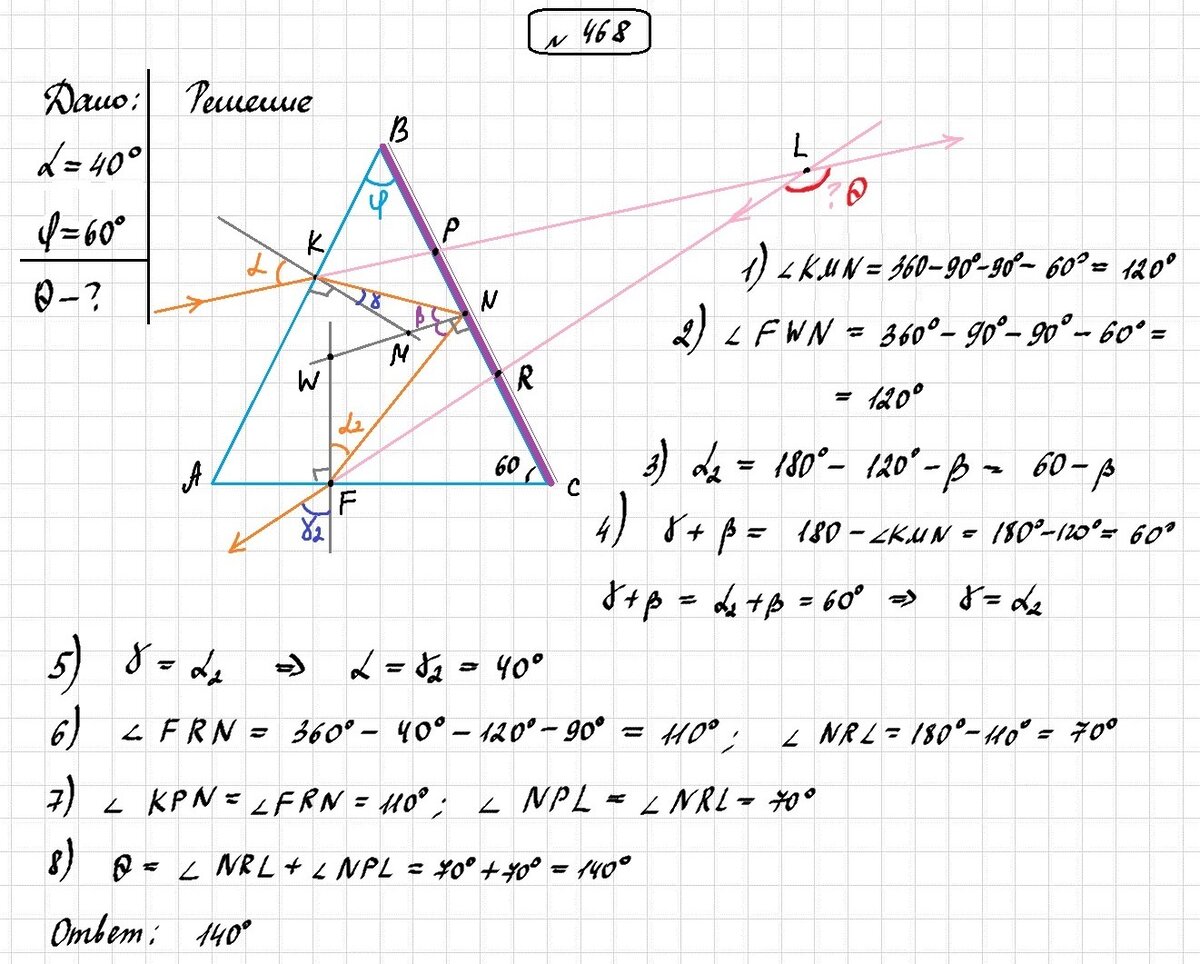 N 468
Дано:
Решение
α = 40°
φ = 60°
Θ - ?
B
φ
P
L
? Θ
K
α
γ
β
N
M
W
R
α₂
A
60
C
F
γ₂
1) ∠KMN = 360-90°-90°- 60° = 120°
2) ∠FWN = 360°- 90°- 90°- 60° =
= 120°
3) α₂ = 180°- 120° - β = 60 - β
4) γ + β = 180 - ∠KMN = 180°-120° = 60°
γ + β = α₂ + β = 60° ⇒ γ = α₂
5) γ = α₂ ⇒ α = γ₂ = 40°
6) ∠FRN = 360° - 40° - 120° - 90° = 110° ; ∠NRL = 180° - 110° = 70°
7) ∠KPN = ∠FRN = 110° ; ∠NPL = ∠NRL = 70°
8) Θ = ∠NRL + ∠NPL = 70° + 70° = 140°
Ответ: 140°